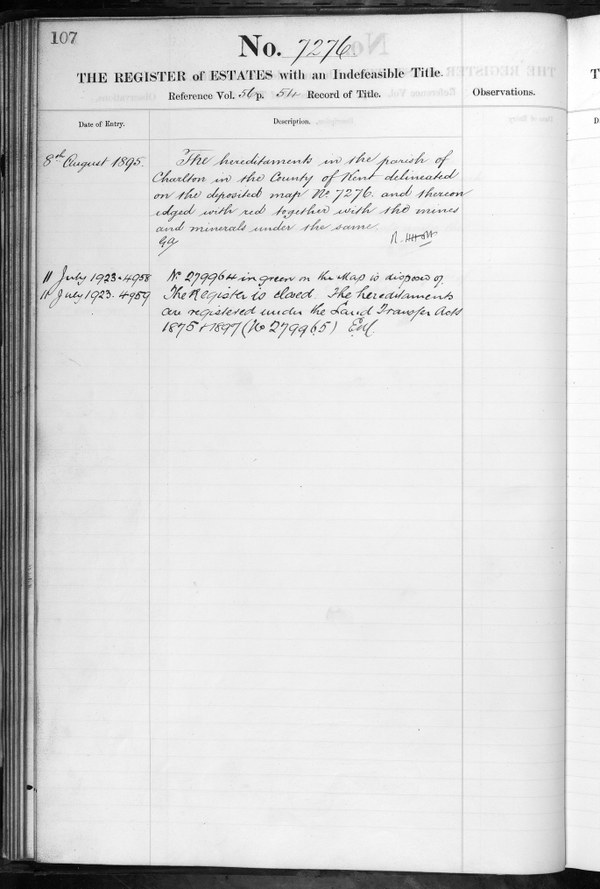 107
No. 7276
THE REGISTER of ESTATES with an Indefeasible Title.
Reference Vol. 56 p. 54 Record of Title.
Observations.
Date of Entry.
Description.
8th August 1895
The hereditaments in the parish of
Charlton in the County of Kent delineated
on the deposited map No. 7276 and thereon
edged with red together with the mines
and minerals under the same.
11 July 1923. 4958
No 279964 in green on the Map is disposed of.
11 July 1923. 4959
The Register is closed. The hereditaments
are registered under the Land Transfer Acts
1875 & 1897 (No 279965)